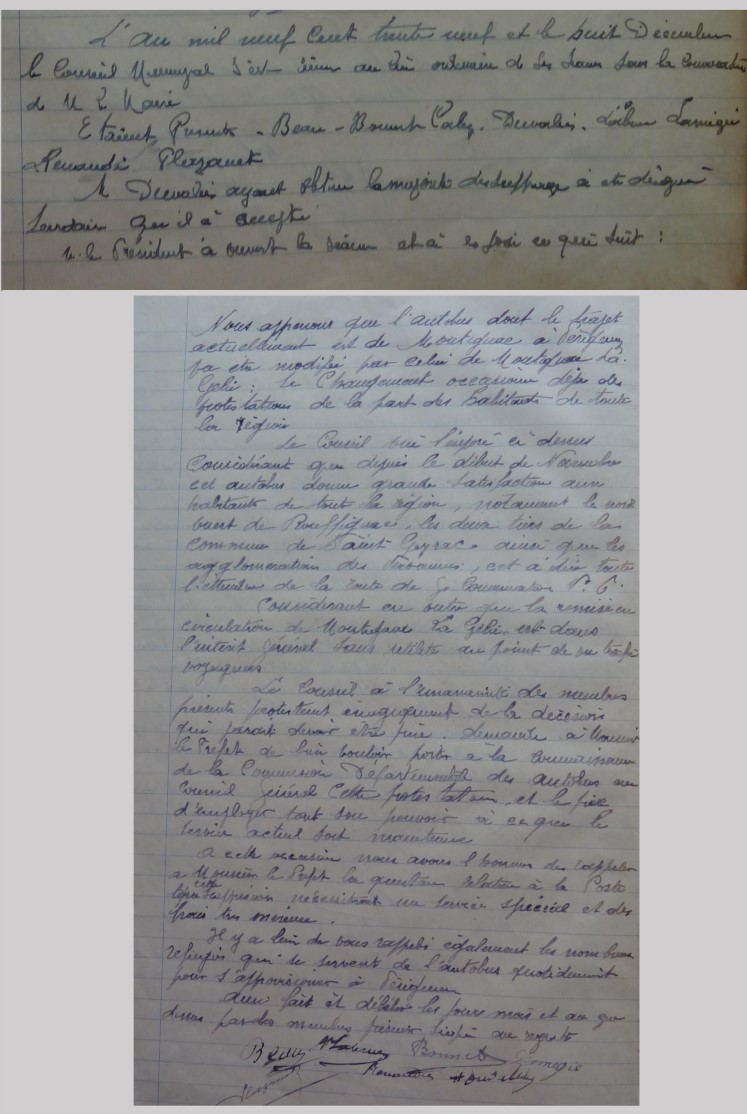 L'an mil neuf cent trente neuf et le huit Décembre
le Conseil Municipal s'est réuni au lieu ordinaire de ses séances sous la convocation
de M le Maire
Etaient Présents - Beau - Bonnet Lamigie
Renaudie
M ayant obtenu la majorité des suffrages à été désigné
qu'il à accepté
M. le Président à ouvert la séance et à exposé ce qui suit :
Nous apprenons que l'autobus dont le trajet
actuellement est de Montignac à Périgueux
va être modifié par celui de Montignac La
Gelie : Le Changement occasionne déjà des
protestations de la part des habitants de toute
la région
Le Conseil ouï l'exposé ci dessus
Considérant que depuis le début de Novembre
cet autobus donne grande satisfaction aux
habitants de tout la région, notamment le nord
ouest de Rouffignac, les deux tiers de la
commune de Saint Geyrac ainsi que les
agglomération des , c'est à dire toute
l'étendue de la route de Gde Communication N° 6.
Considérant en outre que la remise en
circulation de Montignac La Gelie est dans
l'intérêt général sans utilité au point de vue trafic
voyageurs
Le Conseil à l'unanimité des membres
présents protestent énergiquement de la décision
qui parait devoir être prise. demande à Monsieur
le Préfet de bien vouloir porter à la connaissance
de la Commission Départementale des autobus au
Conseil Général cette protestation, et le prie
d'employer tout son pouvoir à ce que le
service actuel soit maintenu
A cette occasion nous avons l'honneur de rappeler
a Monsieur le Préfet la question relative à la Poste
cette suppression nécessitant un service spécial et des
frais très onéreux.
Il y a lieu de vous rappeler également les nombreux
réfugiés qui se servent de l'autobus quotidiennement
pour s'approvisionner à Périgueux
fait et délibéré les jours mois et an que
dessus par les membres présents signé au registre
Beau Bonnet Lamigie
Renaudie